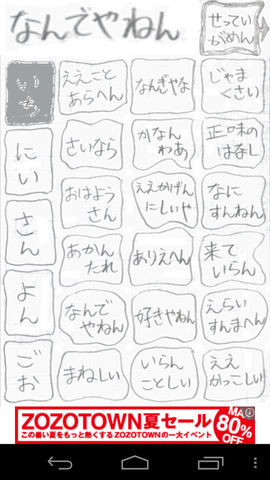 なんでやねん
せってい
がめん
いち
にい
さん
よん
ごお
ええこと
あらへん
なんぎやな
じゃま
くさい
さいなら
かなん
わあ
正味の
はなし
おはよう
さん
ええかげん
にしいや
なに
すんねん
あかん
たれ
ありえへん
来て
いらん
なんで
やねん
好きやねん
えらい
すんまへん
まねしい
いらん
ことしい
ええ
かっこしい
ZOZOTOWN夏セール
この暑い夏をもっと熱くするZOZOTOWNの一大イベント
80%
OFF